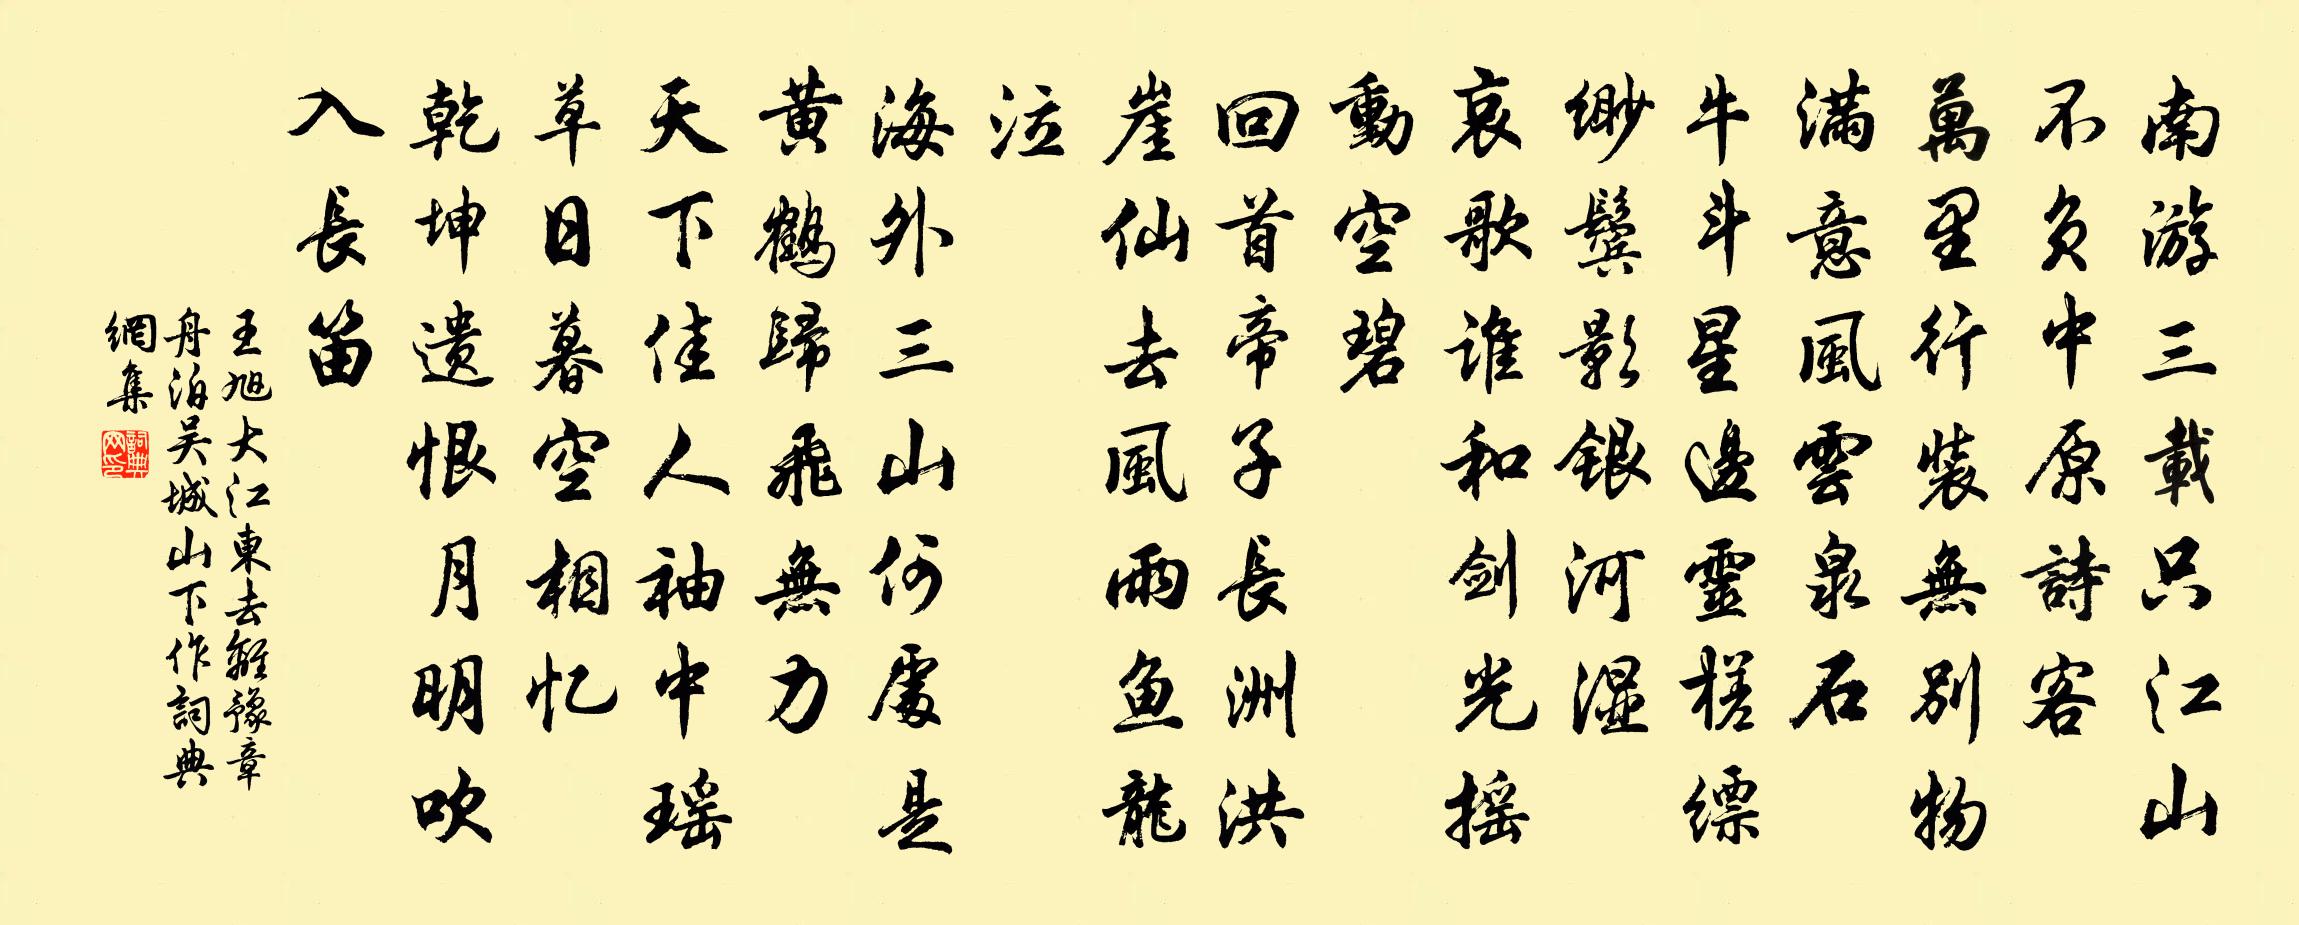 南游三載只江山
不負中原詩客
萬里行裝無別物
滿意風雲泉石
牛斗星邊靈槎縹
緲鬢影銀河湿
哀歌誰和剑光摇
動空碧
回首帝子長洲洪
崖仙去風雨鱼龍
泣
海外三山何處是
黄鶴歸飛無力
天下佳人袖中瑶
草日暮空相忆
乾坤遗恨月明吹
入長笛
王旭大江東去離豫章
舟泊吴城山下作詞典
網集
詞典网印